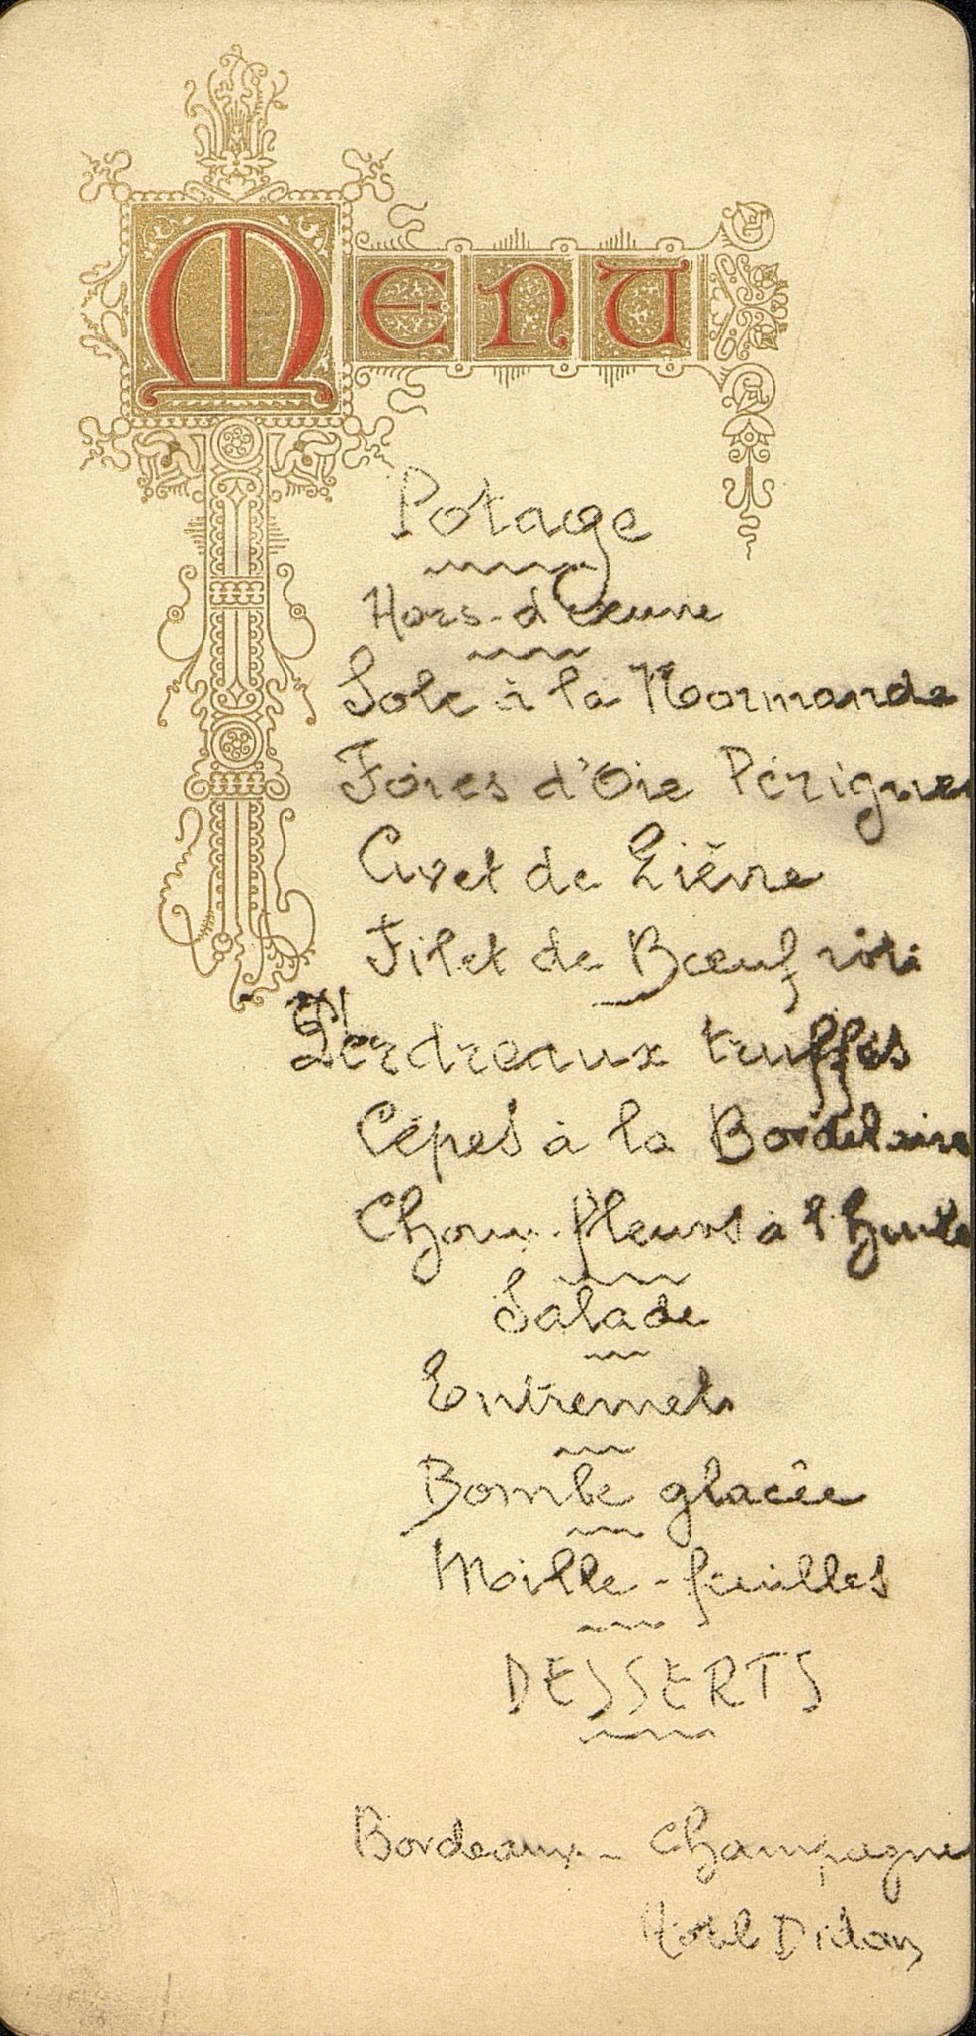 Menu
Potage
Hors-d'Œuvre
Sole à la Normande
Foies d'Oie Périgueu
Civet de Lièvre
Filet de Bœuf rôti
Perdreaux truffés
Cèpes à la Bordelaise
Choux-fleurs à l'Huile
Salade
Entremets
Bombe glacée
Mille-feuilles
DESSERTS
Bordeaux - Champagne
Hôtel Didon